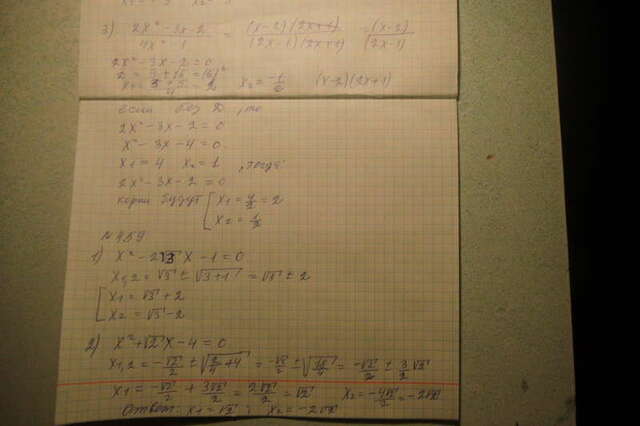 3) (2x² - 3x - 2)/(4x² - 1) = (x-2)(2x+1)/(2x-1)(2x+1) = (x-2)/(2x-1)
2x² - 3x - 2 = 0
(x-2)(2x+1)
если без D, то
2x² - 3x - 2 = 0
x² - 3x - 4 = 0
x1 = 4 x2 = 1, тогда
2x² - 3x - 2 = 0
корни будут [ x1 = 4/2 = 2
x2 = 1/2
№ 459
1) x² - 2√3 x - 1 = 0
x1,2 = √3 ± √3+1 = √3 ± 2
[ x1 = √3 + 2
x2 = √3 - 2
2) x² + √2 x - 4 = 0
x1,2 = -√2/2 ± √(2/4 + 4) = -√2/2 ± √(18/4) = -√2/2 ± 3/2 √2
x1 = -√2/2 + 3√2/2 = 2√2/2 = √2 x2 = -4√2/2 = -2√2
Ответ: x1 = √2; x2 = -2√2